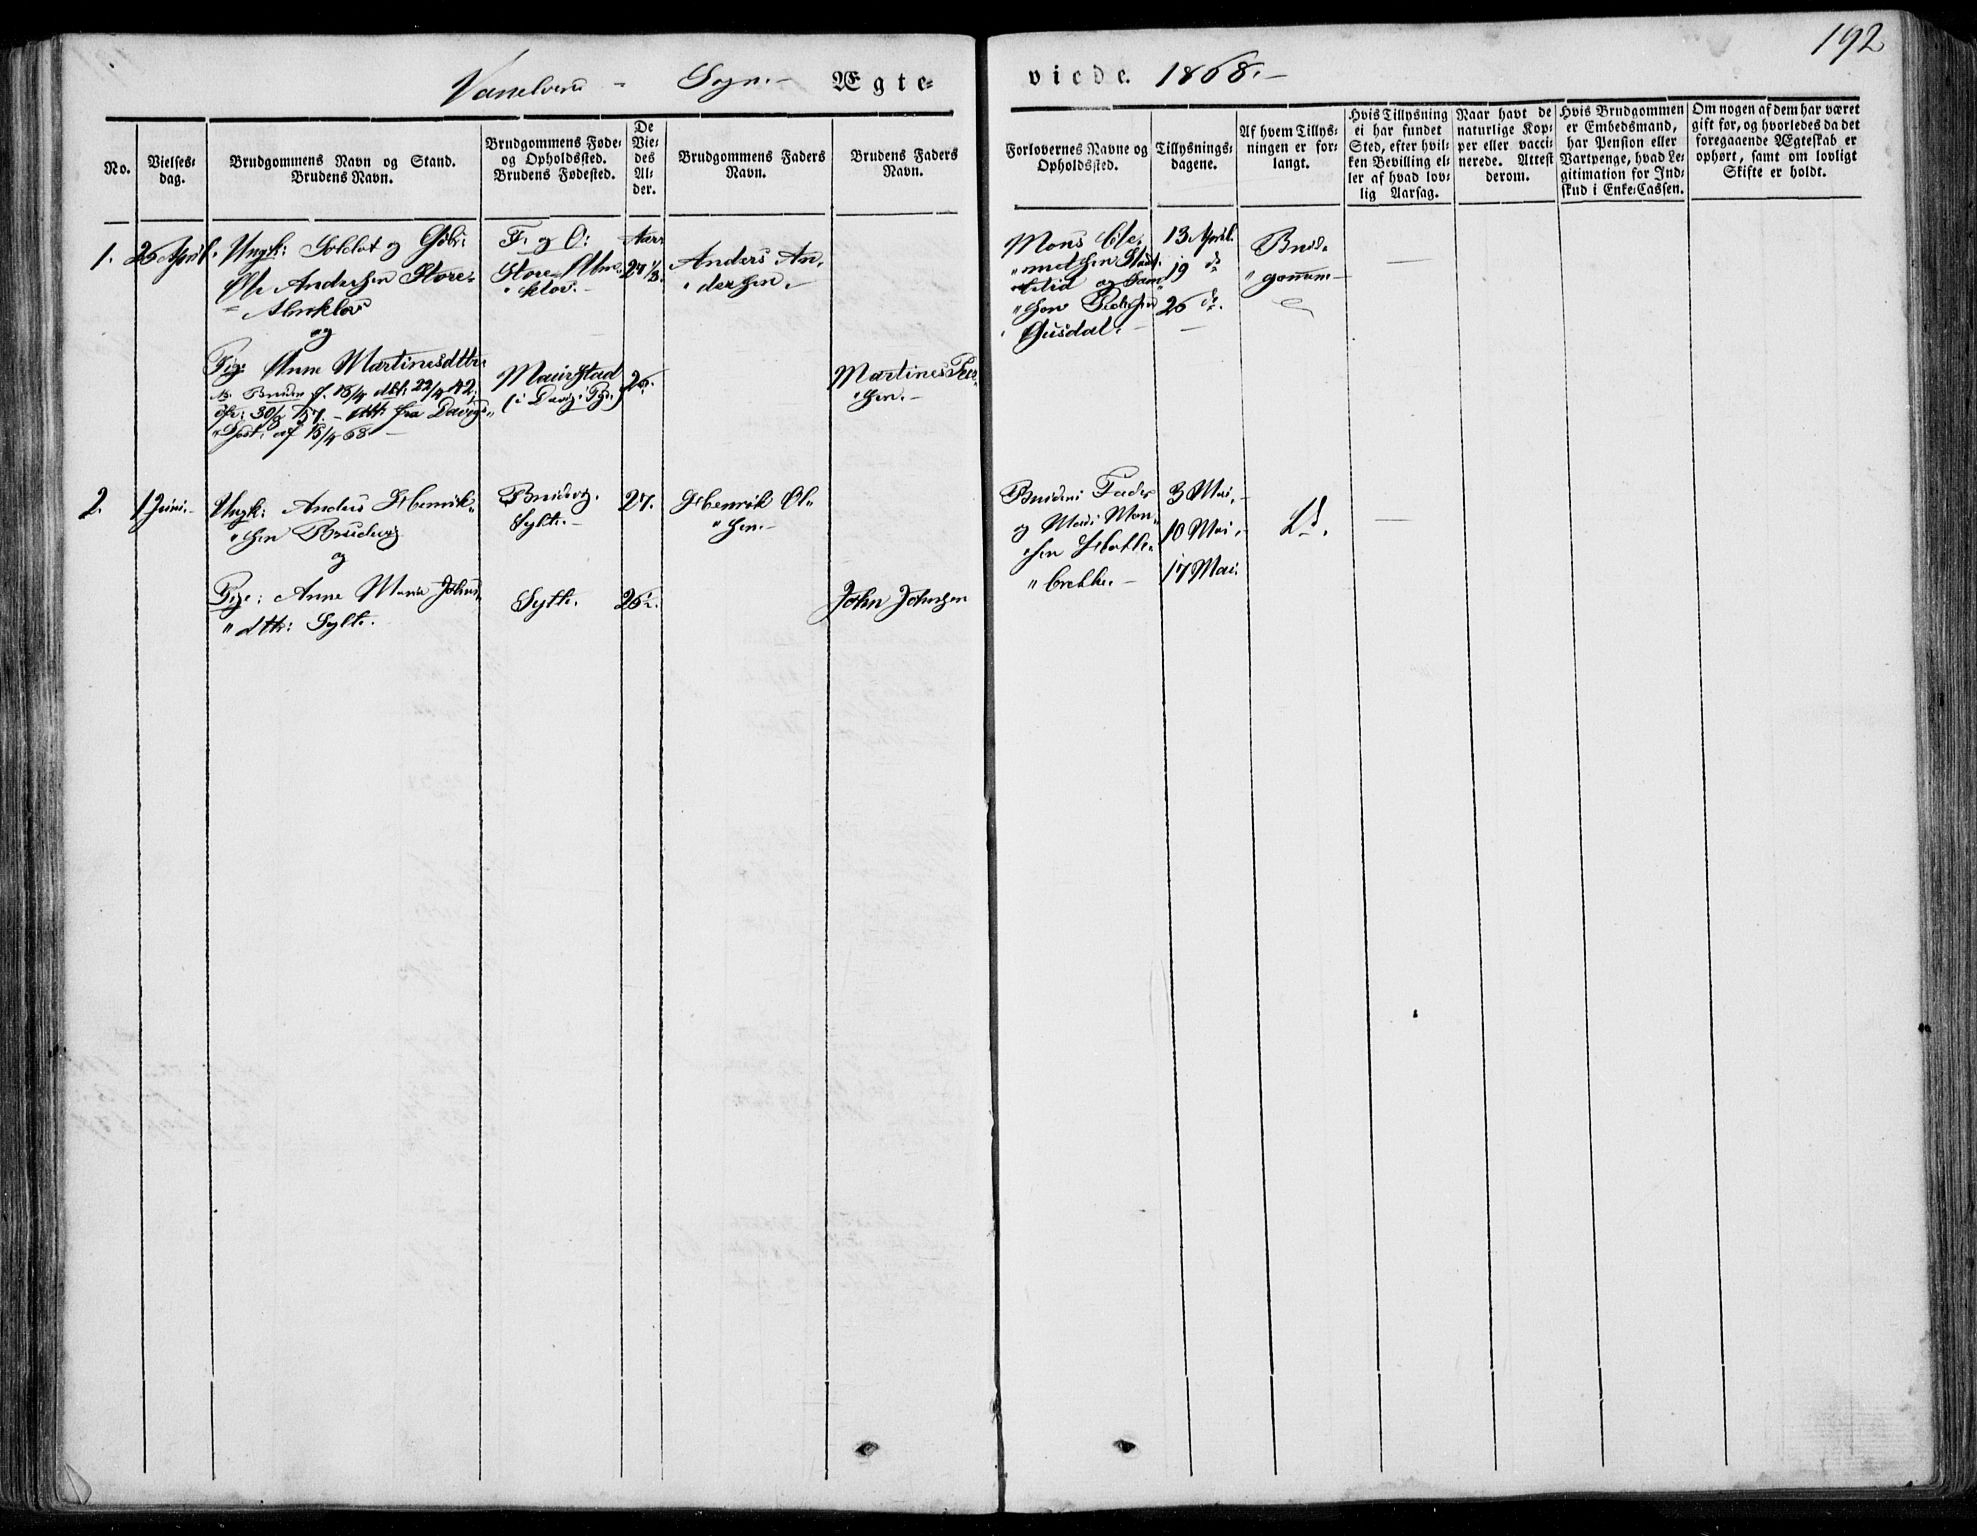 192
Vanelvens - Sogn. - Ægte= viede. 1868. -
No.
Vielses=
dag.
Brudgommens Navn og Stand.
Brudens Navn.
Brudgommens Føde=
og Opholdssted.
Brudens Fødested.
De
Vie=
des
Al=
der.
Brudgommens Faders
Navn.
Brudens Faders
Navn.
Forlovernes Navne og
Opholdssted.
Tillysnings=
dagene.
Af hvem Tillys=
ningen er for=
langt.
Hvis Tillysning
ei har fundet
Sted, efter hvil=
ken Bevilling el=
ler af hvad lov=
lig Aarsag.
Naar havt de
naturlige Kop=
per eller vacci=
nerede. Attest
derom.
Hvis Brudgommen
er Embedsmand,
har Pension eller
Vartpenge, hvad Le=
gitimation for Ind=
skud i Enke=Cassen.
Om nogen af dem har været
gift før, og hvorledes da det
foregaaende Ægteskab er
ophørt, samt om lovligt
Skifte er holdt.
1.
26 April.
Ungk: Soldat og
Ole Andersen Store=
Almklov
og
Pige: Anne Martinesdttr.
Bruden f. 18/4 dbt: 22/4 42.
30/8 57. - att: fra Davigs
af 18/4 68
F. og O:
Store Alm=
klov. -
Maurstad
(i Davigs Pgj.)
Aar
27 1/3
26.
Anders An=
dersen. -
Martines Peder=
sen. -
Mons Cle=
metsen
og
Gusdal. -
13 April.
19 do
26 do.
Brud=
gommen
—
2.
1 Juni. -
Ungk: Anders Henrik=
sen Brudevig
og
Pige: Anne Maria Johns=
dtr: Sylte.
Brudevig.
Sylte. -
Sylte.
27.
26 1/2.
Henrik Ol=
sen. -
John Johnsen
Brudens Fader
og Mons Mon=
sen Hatle=
brekke. -
3 Mai. -
10 Mai. -
17 Mai.
Do.
—